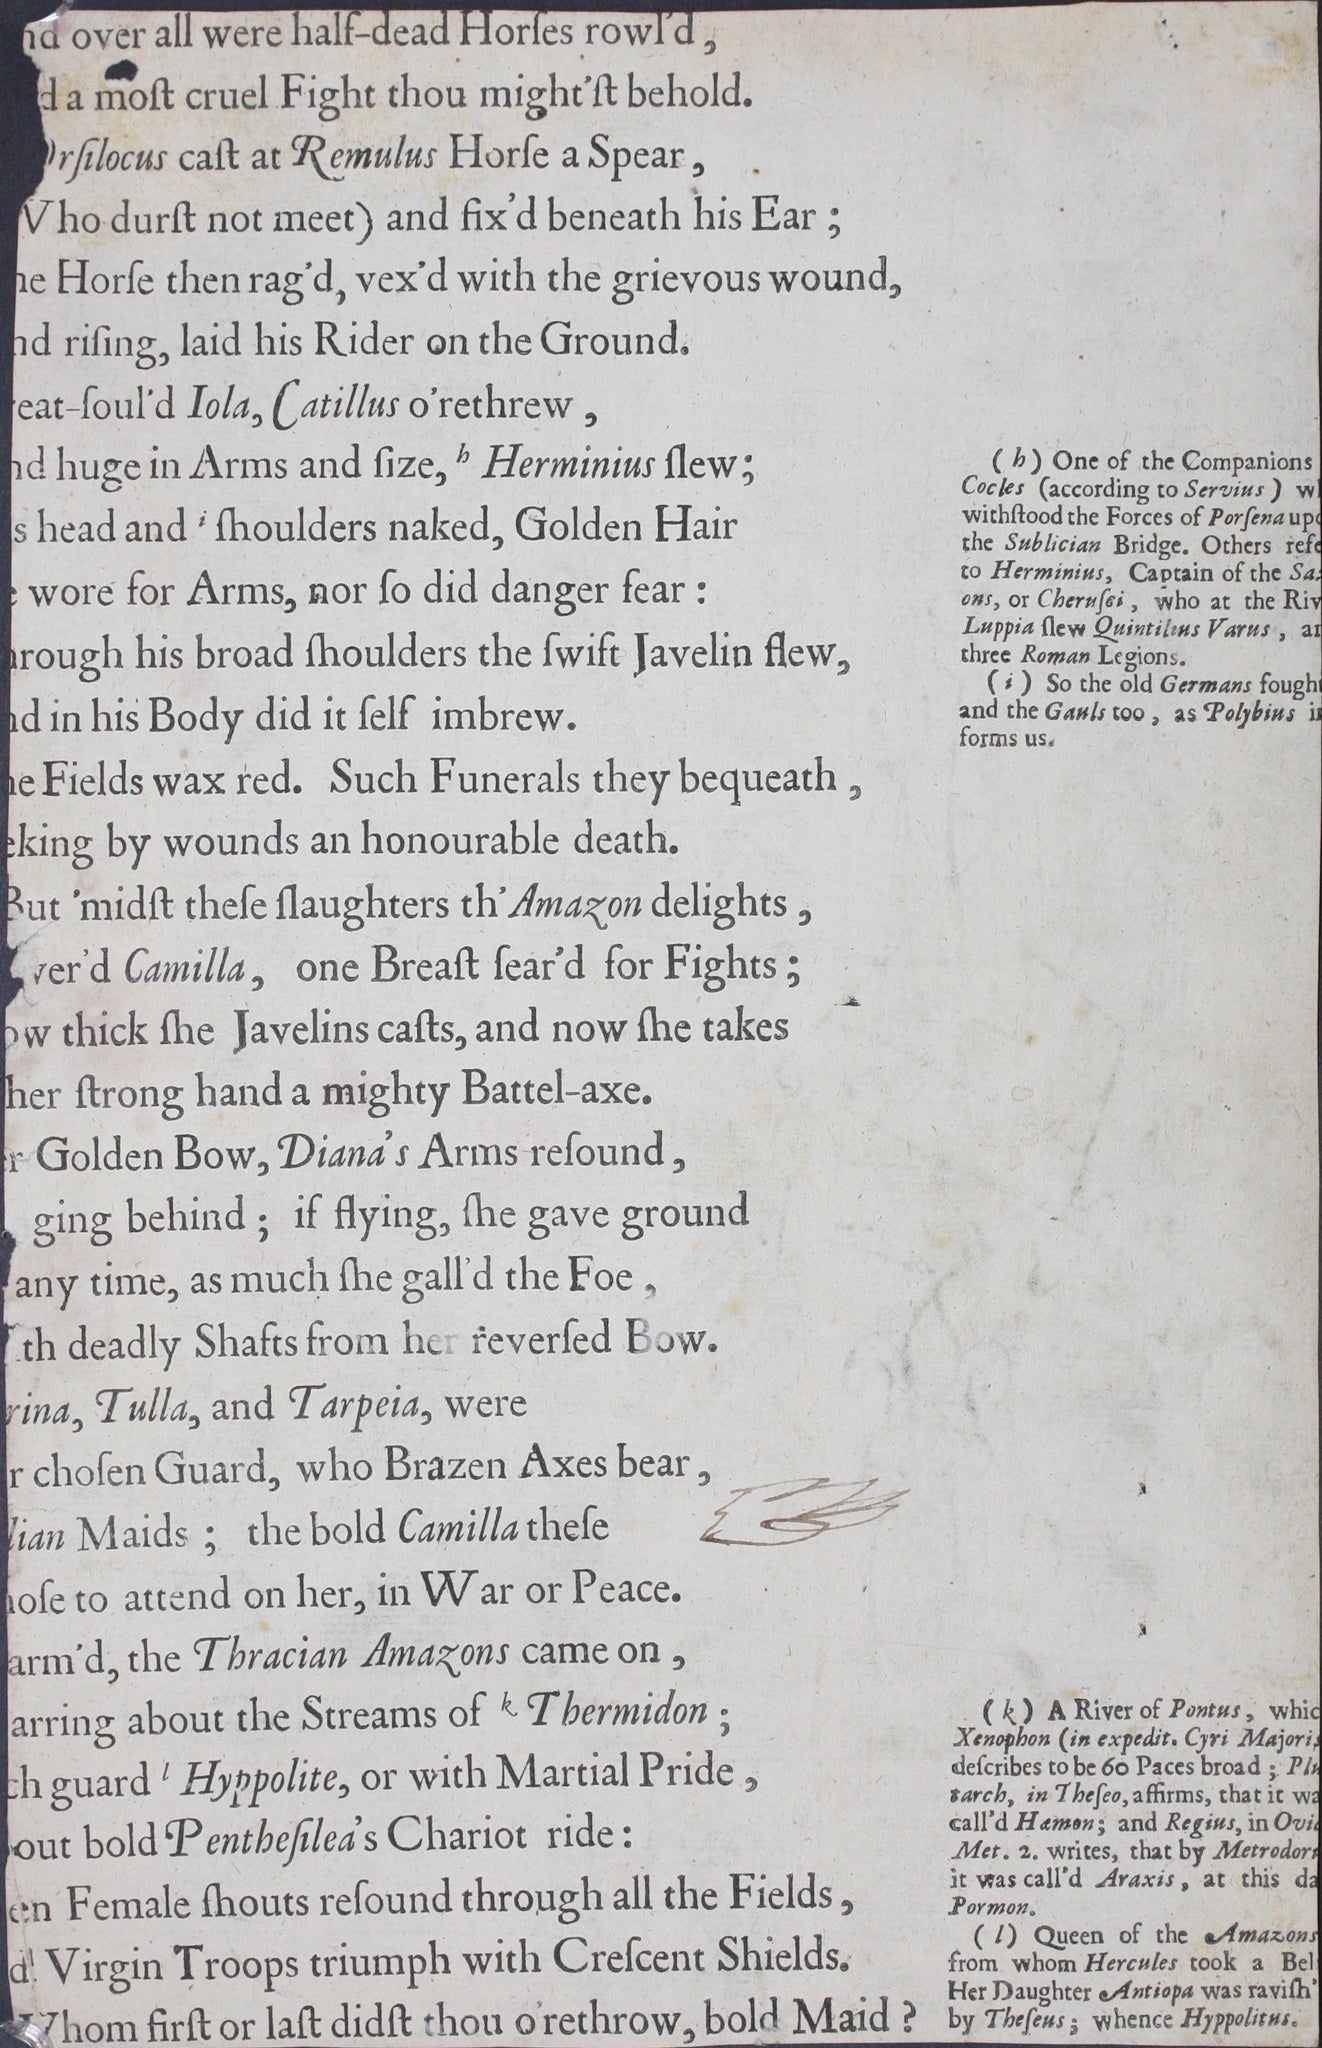 nd over all were half-dead Horſes rowl'd,
d a moſt cruel Fight thou might'ſt behold.
Orſilocus caſt at Remulus Horſe a Spear,
Who durſt not meet) and fix'd beneath his Ear;
he Horſe then rag'd, vex'd with the grievous wound,
nd riſing, laid his Rider on the Ground.
reat-ſoul'd Iola, Catillus o'rethrew,
nd huge in Arms and ſize, h Herminius ſlew;
s head and i ſhoulders naked, Golden Hair
e wore for Arms, nor ſo did danger fear:
hrough his broad ſhoulders the ſwift Javelin flew,
nd in his Body did it ſelf imbrew.
he Fields wax red. Such Funerals they bequeath,
eking by wounds an honourable death.
But 'midſt theſe ſlaughters th' Amazon delights,
ver'd Camilla, one Breaſt ſear'd for Fights;
ow thick ſhe Javelins caſts, and now ſhe takes
her ſtrong hand a mighty Battel-axe.
r Golden Bow, Diana's Arms reſound,
ging behind; if flying, ſhe gave ground
any time, as much ſhe gall'd the Foe,
th deadly Shafts from her reverſed Bow.
rina, Tulla, and Tarpeia, were
r choſen Guard, who Brazen Axes bear,
lian Maids; the bold Camilla theſe
hoſe to attend on her, in War or Peace.
arm'd, the Thracian Amazons came on,
arring about the Streams of k Thermidon;
ch guard l Hyppolite, or with Martial Pride,
bout bold Pentheſilea's Chariot ride:
en Female ſhouts reſound through all the Fields,
d Virgin Troops triumph with Creſcent Shields.
Whom firſt or laſt didſt thou o'rethrow, bold Maid?
(h) One of the Companions
Cocles (according to Servius) wh
withſtood the Forces of Porſena upo
the Sublician Bridge. Others refe
to Herminius, Captain of the Sax
ons, or Cheruſci, who at the Riv
Luppia ſlew Quintilius Varus, an
three Roman Legions.
(i) So the old Germans fought
and the Gauls too, as Polybius in
forms us.
(k) A River of Pontus, whic
Xenophon (in expedit. Cyri Majoris
deſcribes to be 60 Paces broad; Plu
tarch, in Theſeo, affirms, that it wa
call'd Hæmon; and Regius, in Ovid
Met. 2. writes, that by Metrodor
it was call'd Araxis, at this da
Pormon.
(l) Queen of the Amazons
from whom Hercules took a Bel
Her Daughter Antiopa was raviſh'
by Theſeus; whence Hyppolitus.